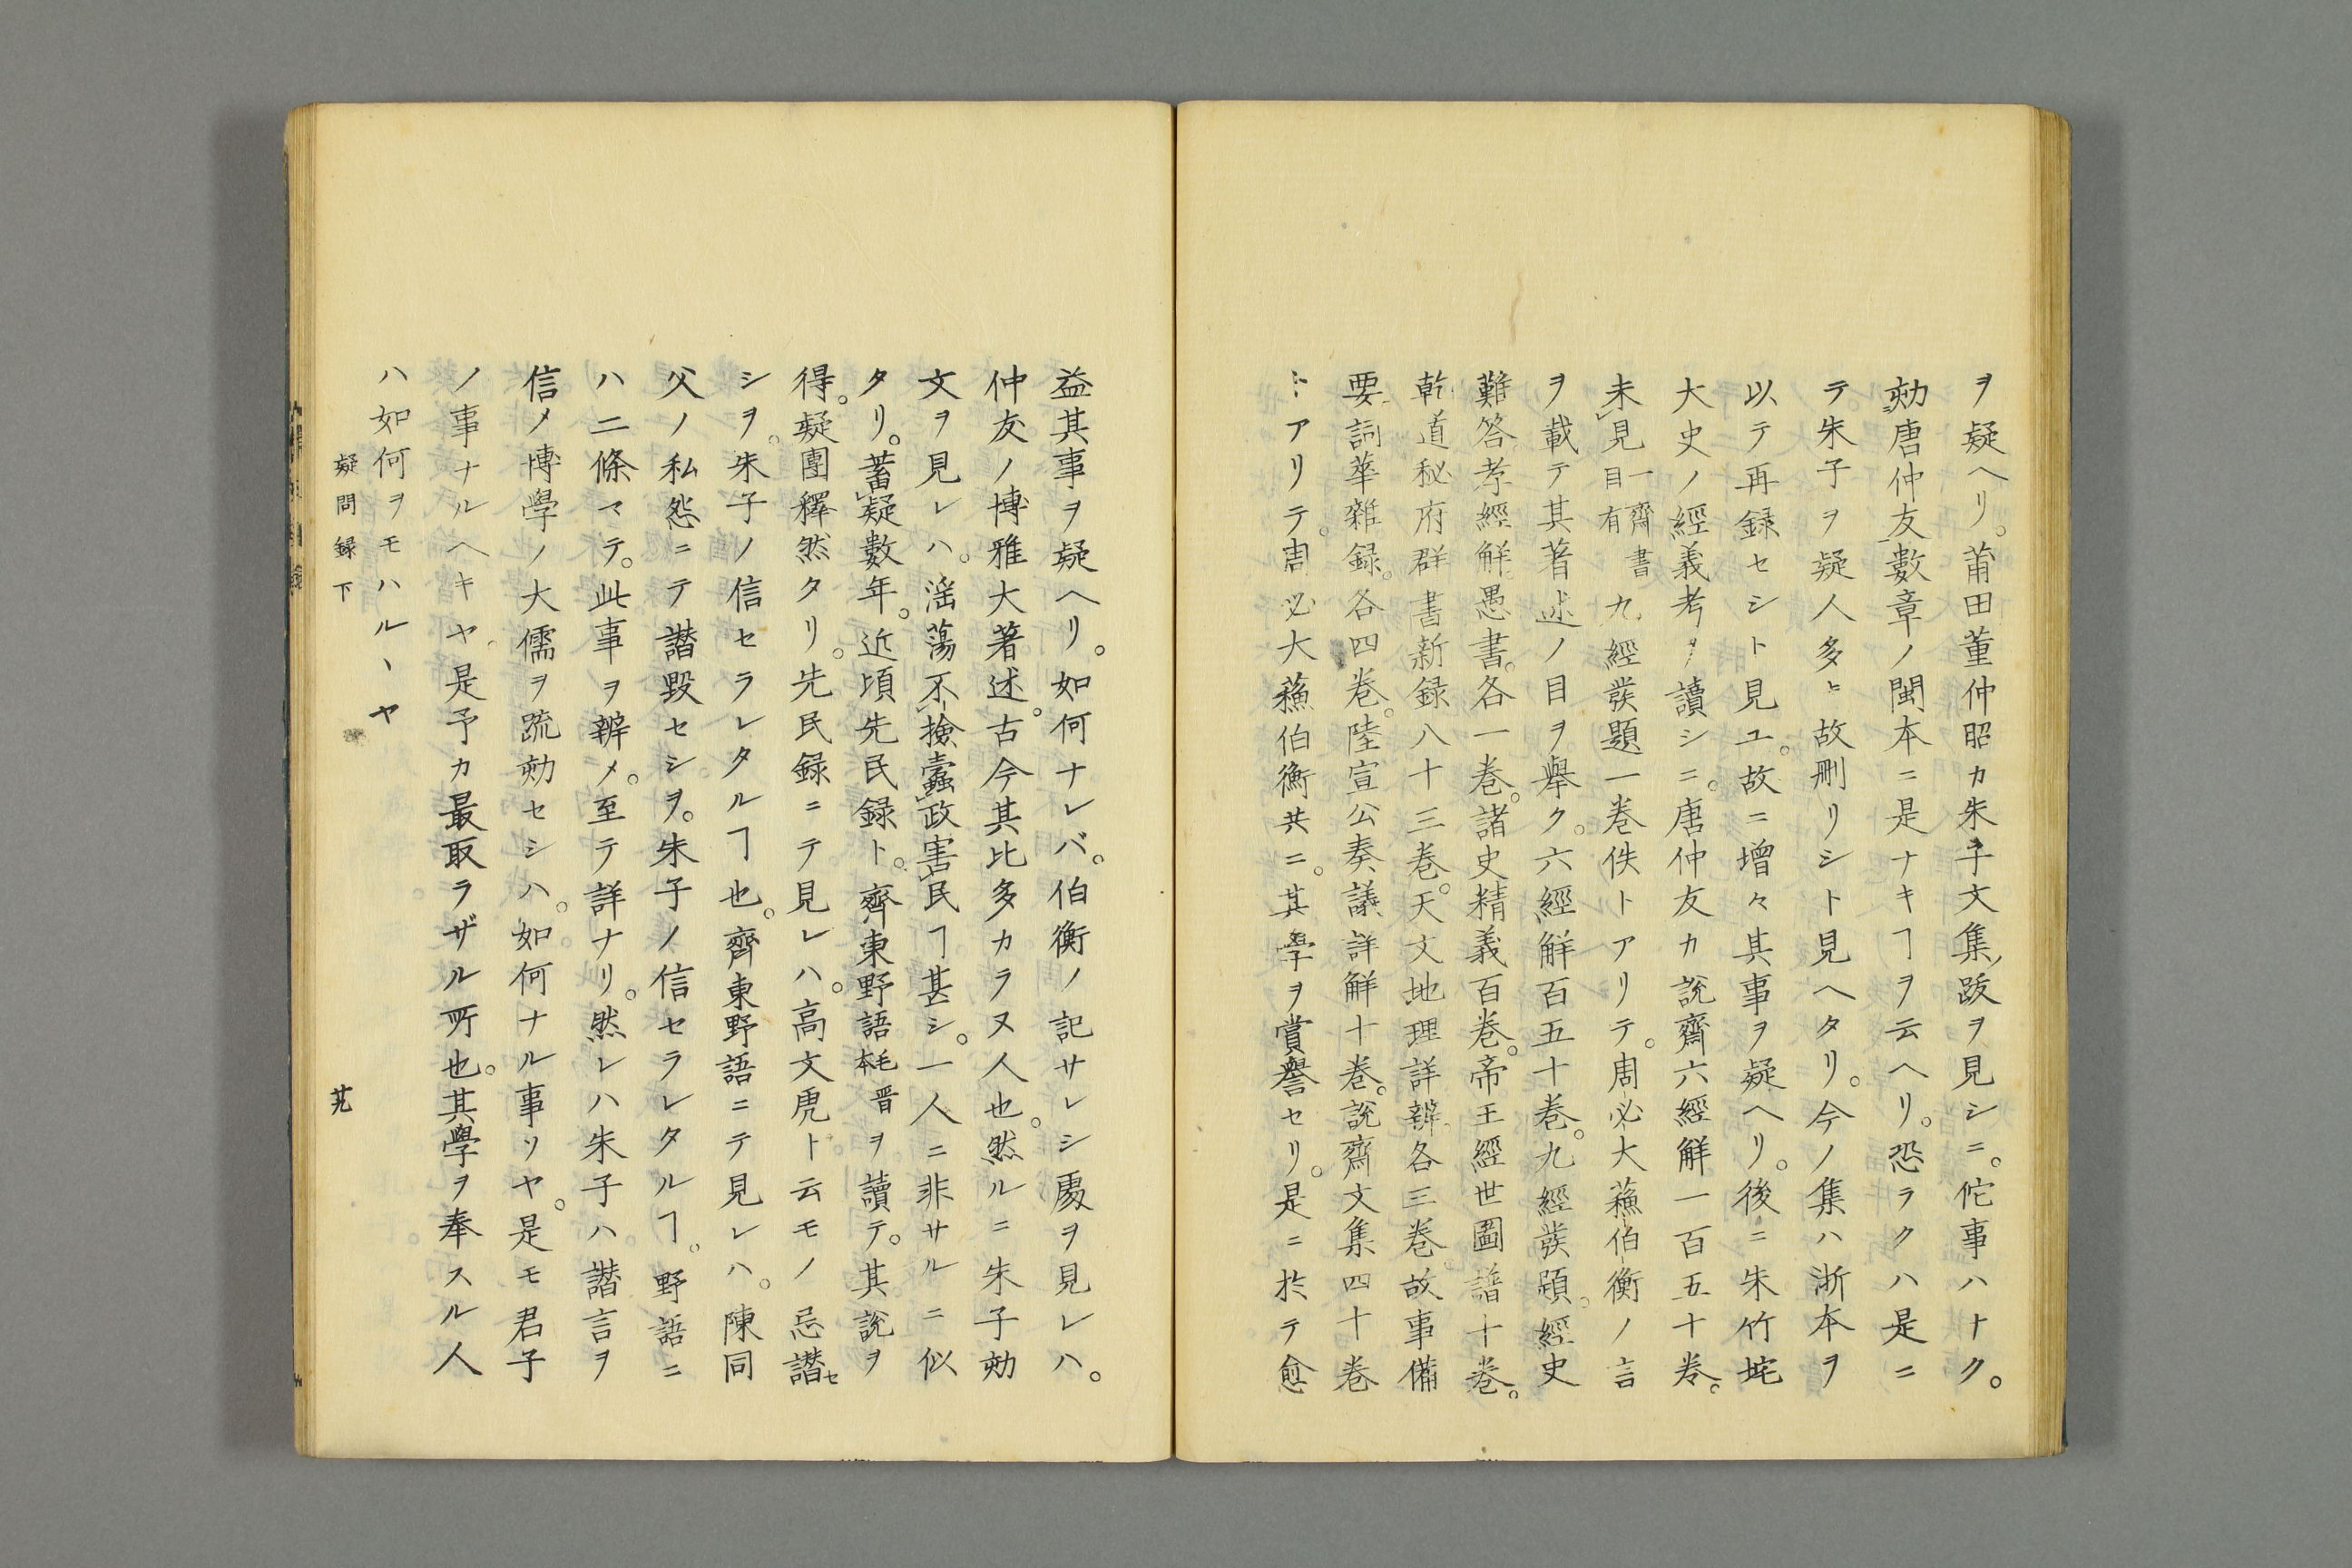 ヲ疑ヘリ。莆田董仲昭カ朱子文集ノ跋ヲ見シニ。佗事ハナク。
劾唐仲友數章ノ閩本ニ是ナキヿヲ云ヘリ。恐ラクハ是ニ
テ朱子ヲ疑人多ヒ故刪リシト見ヘタリ。今ノ集ハ浙本ヲ
以テ再録セシト見ユ。故ニ增々其事ヲ疑ヘリ。後ニ朱竹垞
大史ノ經義考ヲ讀シニ。唐仲友カ說齋六經解一百五十卷。
未見一齋書目有九經發題一卷佚トアリテ。周必大蘓伯衡ノ言
ヲ載テ其著述ノ目ヲ舉ク。六經解百五十卷。九經發題。經史
難答孝經解愚書。各一卷。諸史精義百卷。帝王經世圖譜十卷。
乾道秘府群書新録八十三卷。天文地理詳辨各三卷。故事備
要詞華雜録。各四卷。陸宣公奏議詳解十卷。說齋文集四十卷
トアリテ。周必大蘓伯衡共ニ。其學ヲ賞譽セリ。是ニ於テ愈
益其事ヲ疑ヘリ。如何ナレバ。伯衡ノ記サレシ處ヲ見レハ。
仲友ノ博雅大著述。古今其比多カラヌ人也。然ルニ朱子劾
文ヲ見レハ。滛蕩不撿蠹政害民ヿ甚シ。一人ニ非サルニ似
タリ。蓄疑數年。近頃先民録ト。齊東野語毛晋本ヲ讀テ。其說ヲ
得。疑團釋然タリ。先民録ニテ見レハ。高文虎ト云モノ忌譛セ
シヲ。朱子ノ信セラレタルヿ也。齊東野語ニテ見レハ。陳同
父ノ私怨ニテ譛毀セシヲ。朱子ノ信セラレタルヿ。野語ニ
ハ二條マテ。此事ヲ辨メ。至テ詳ナリ。然レハ朱子ハ譛言ヲ
信メ博學ノ大儒ヲ疏劾セシハ。如何ナル事リヤ。是モ君子
ノ事ナルヘキヤ。是予カ最取ラザル所也。其學ヲ奉スル人
ハ如何ヲモハルヽヤ
疑問録下 芄